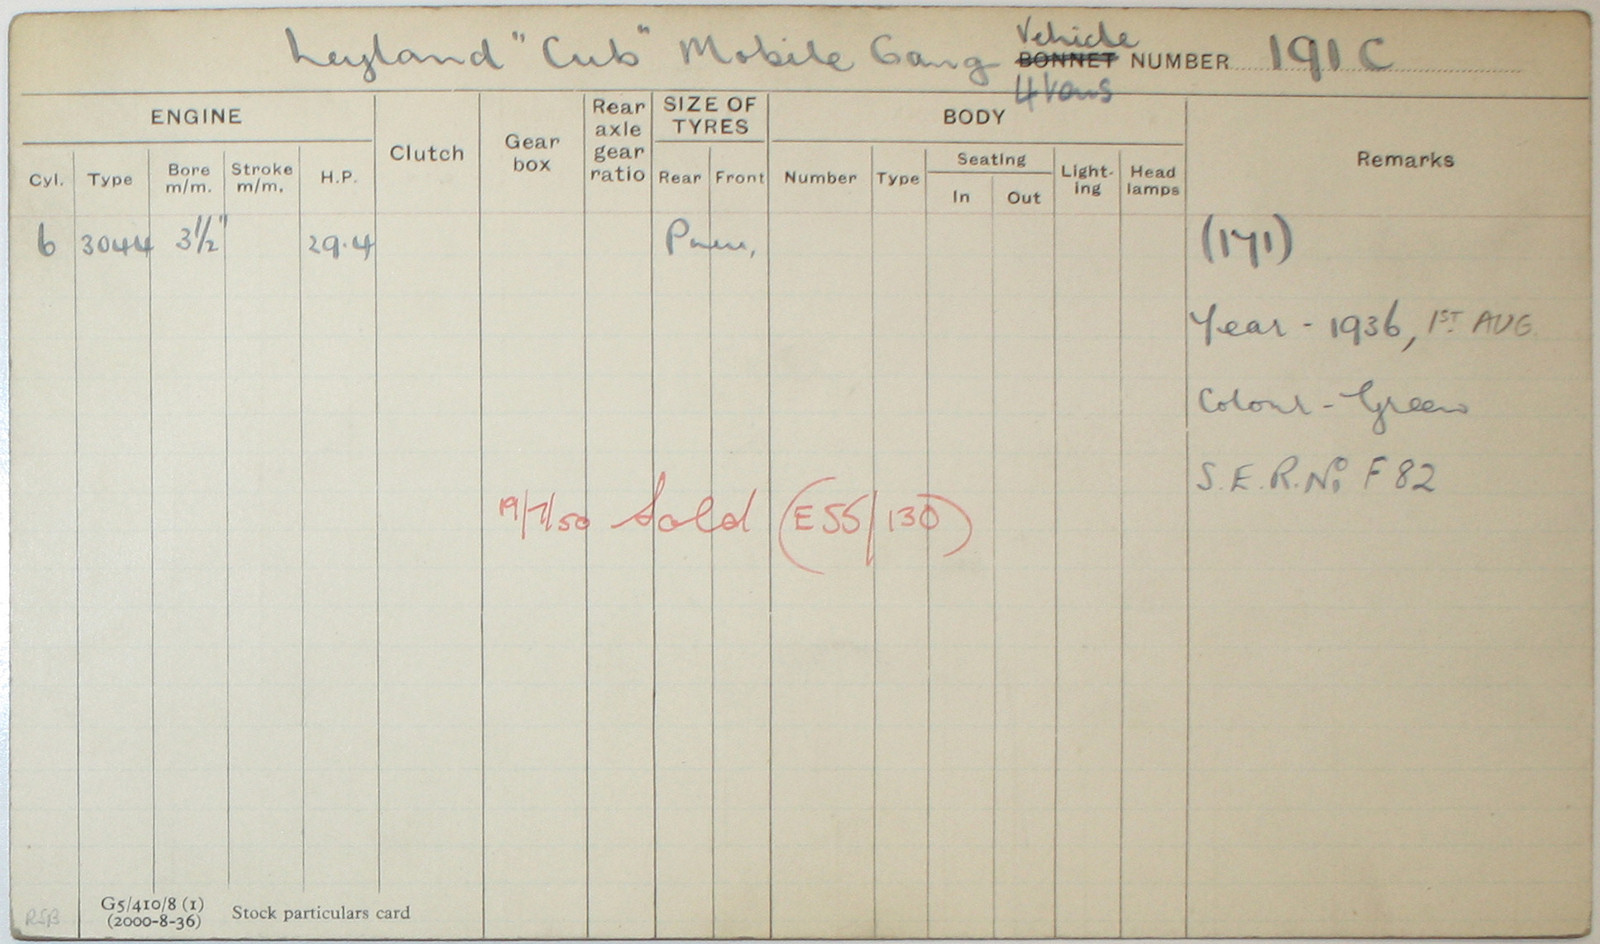 Leyland "Cub" Mobile Gang Vehicle BONNET NUMBER 191 C
4 Vans
ENGINE
Clutch
Gear box
Rear axle gear ratio
SIZE OF TYRES
BODY
Remarks
Cyl. Type Bore m/m. Stroke m/m. H.P.
Rear Front
Number Type Seating Light-ing Head lamps
In Out
6 3044 3½" 29.4 Pneu, (171)
Year - 1936, 1ST AUG.
Colour - Green
S.E.R. No. F 82
19/7/50 Sold (E55/130)
RSB
G5/410/8 (1)
(2000-8-36)
Stock particulars card